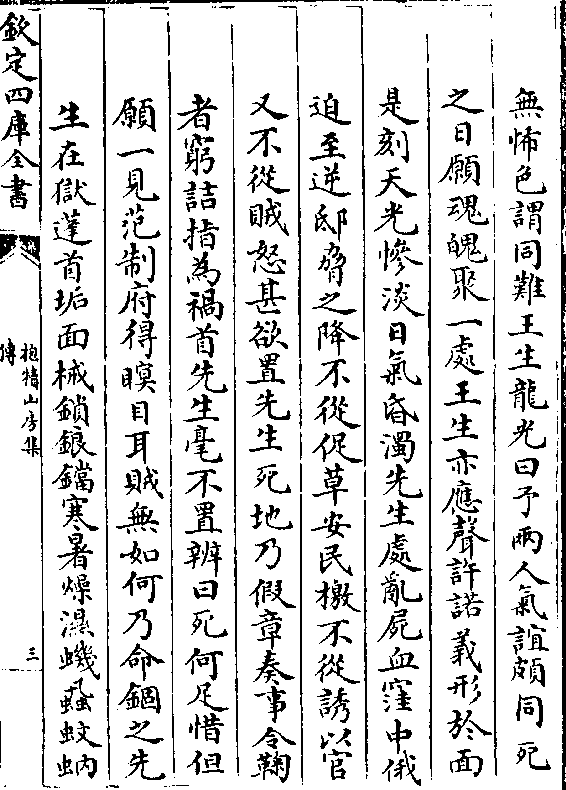 無怖色謂同難王生龍光曰予兩人氣誼頗同死
之日願魂魄聚一處王生亦應聲許諾義形於面
是刻天光慘淡日氣昏濁先生處亂屍血窪中俄
迫至逆邸脅之降不從促草安民檄不從誘以官
又不從賊怒甚欲置先生死地乃假章奏事令鞠
者窮詰指為禍首先生毫不置辨曰死何足惜但
願一見范制府得瞑目耳賊無如何乃命錮之先
生在獄蓬首垢面械鎖鋃鐺寒暑燥濕蟣蝨蚊蚋
欽定四庫全書
抱犢山房集
傳
三